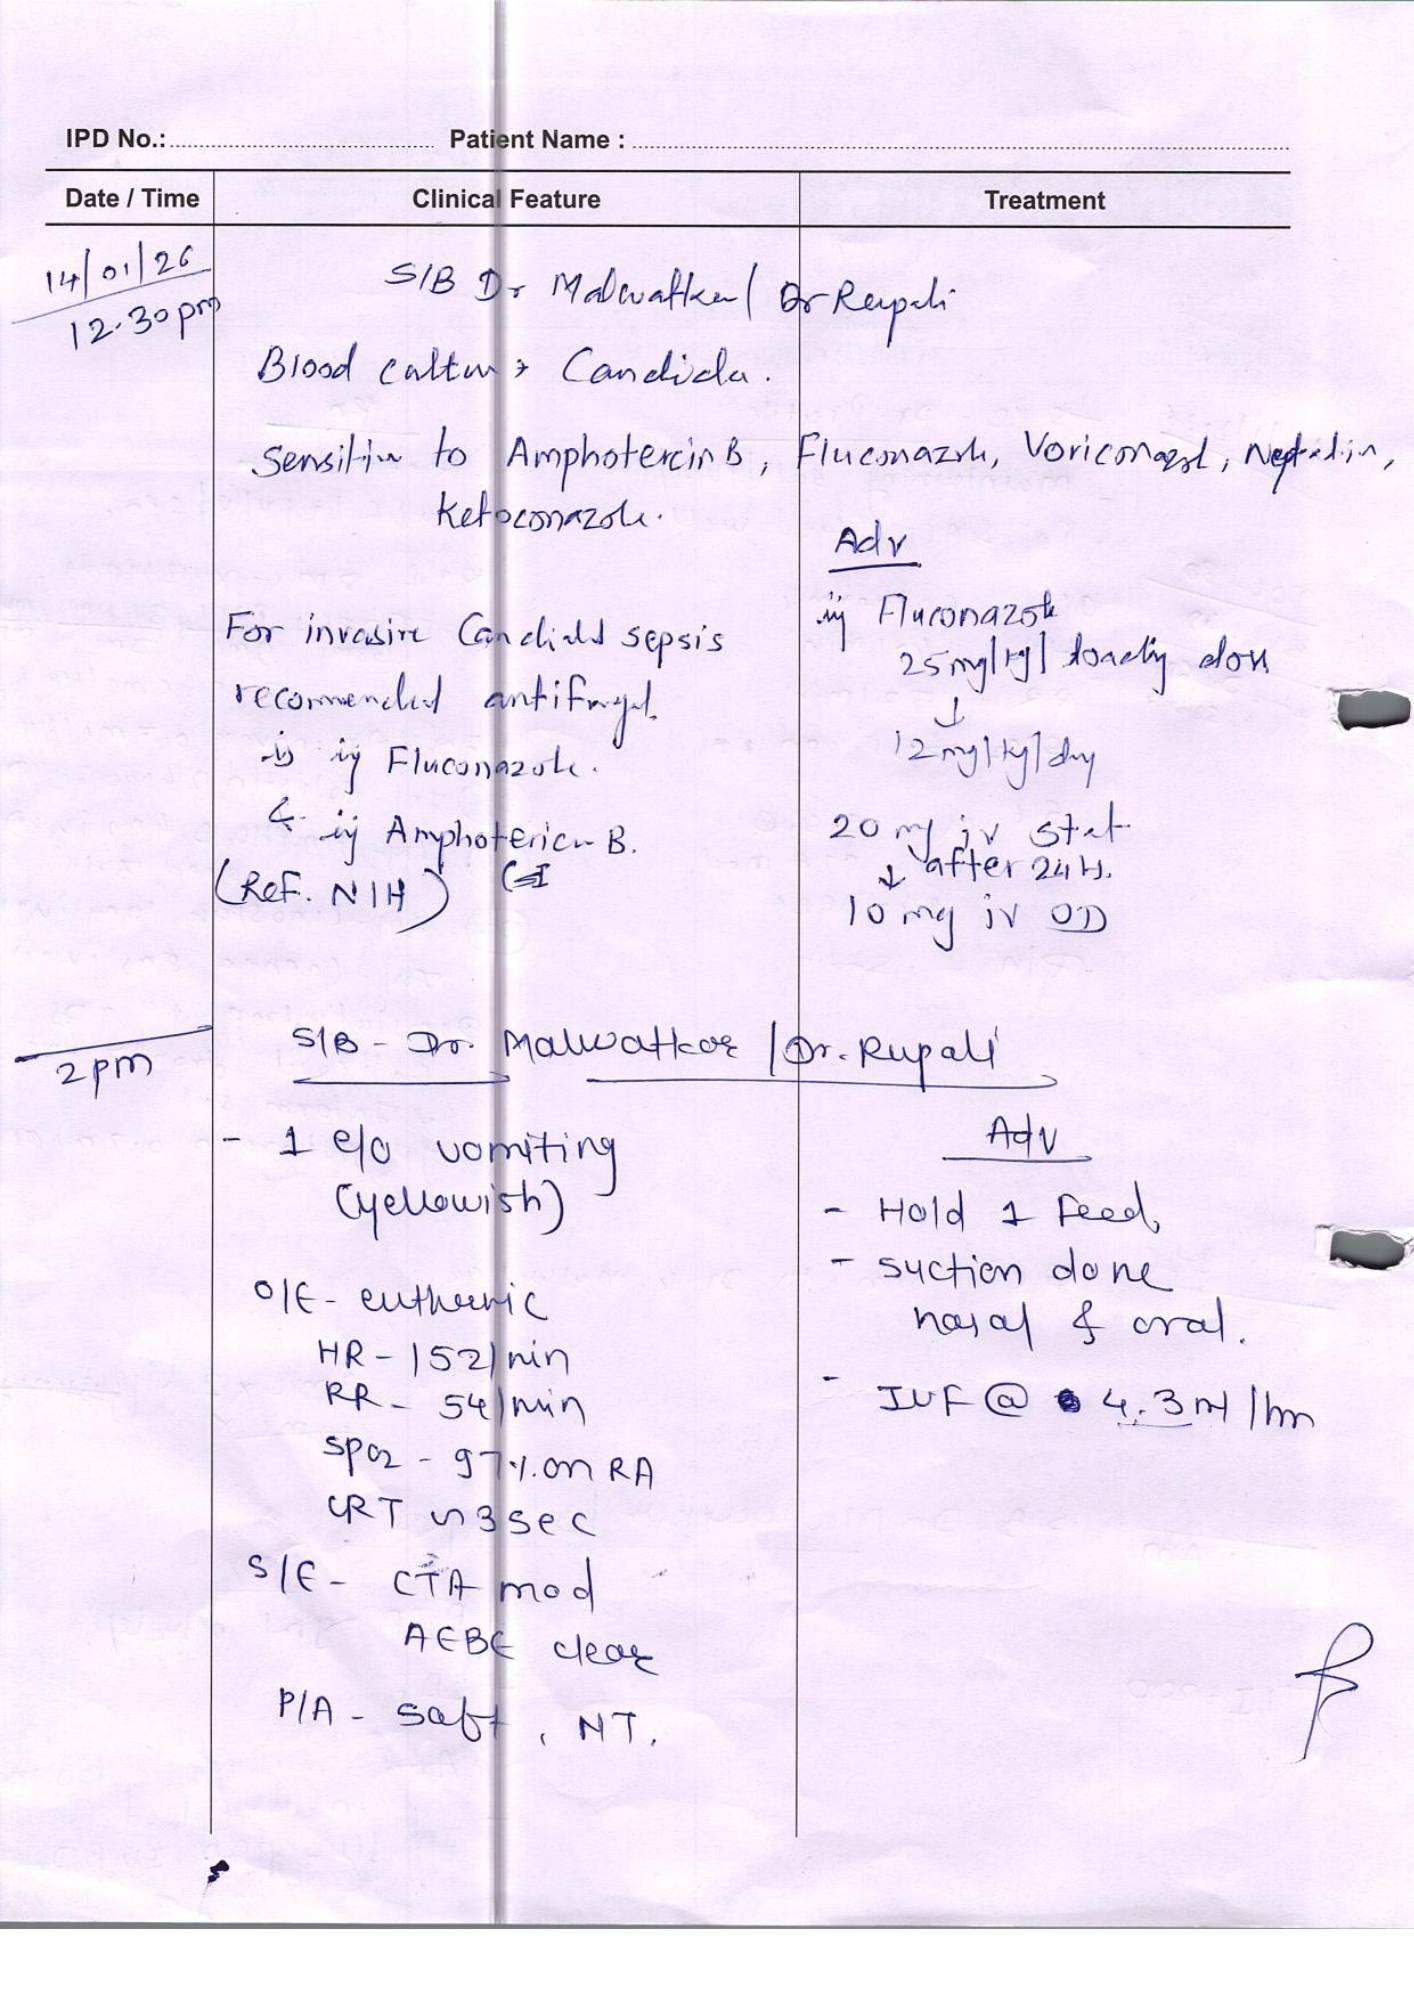 IPD No.: Patient Name :
Date / Time Clinical Feature Treatment
14/01/26
12.30pm
S/B Dr Malwatkar / Dr Rupali
Blood culture → Candida.
Sensitive to Amphotericin B, Fluconazole, Voriconazole,
Ketoconazole.
Adv
For invasive Candidal sepsis
recommended antifungal.
is inj Fluconazole.
& inj Amphotericin B.
(Ref. NIH)
inj Fluconazole
25mg/kg/ loading dose
↓
12mg/kg/day
20 mg iv stat
↓ after 24H.
10 mg iv OD
2pm
S/B - Dr. Malwatkar / Dr. Rupali
- 1 e/o vomiting
(yellowish)
O/E - euthermic
HR - 152/min
RR - 54/min
SpO2 - 97% on RA
CRT <3sec
S/E - CTA mod
AEBE clear
P/A - Soft, NT.
Adv
- Hold 1 Feed,
- suction done
nasal & oral.
- IVF @ 4.3ml/hr